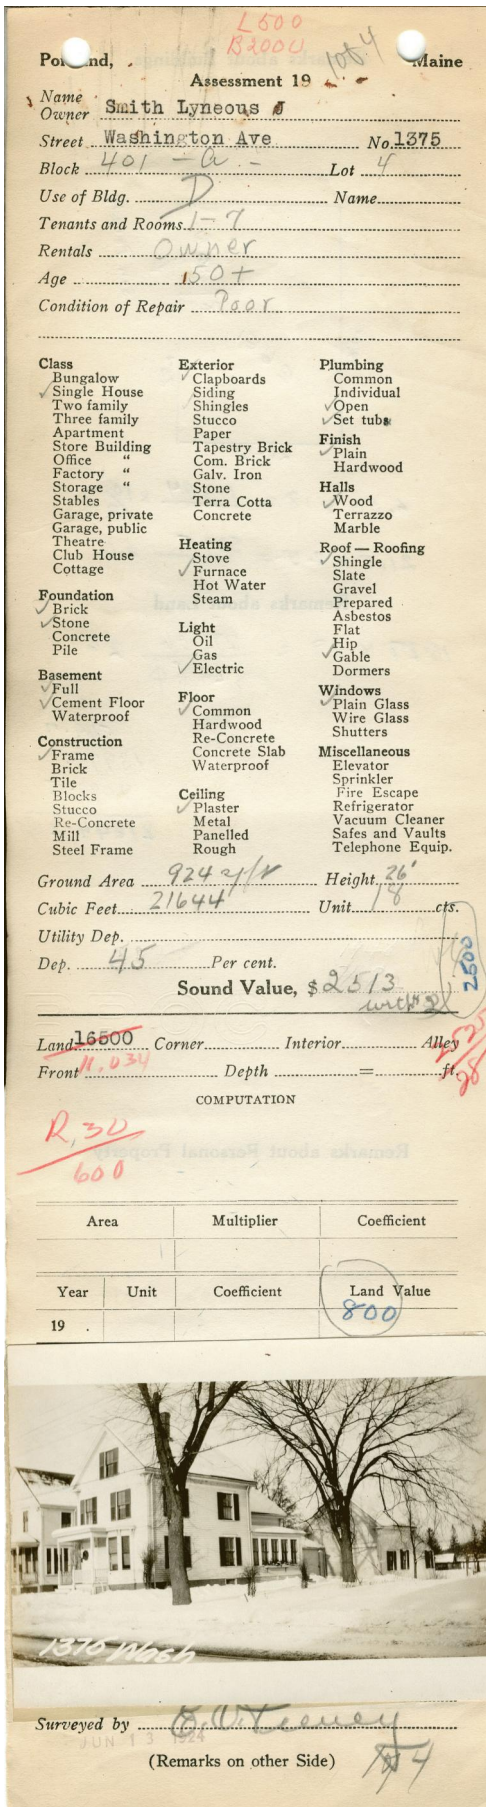 L500
B2000
1 of 4
Portland, Maine
Assessment 19
Name
Owner Smith Lyneous J
Street Washington Ave No. 1375
Block 401 - A - Lot 4
Use of Bldg. D Name
Tenants and Rooms 1-7
Rentals Owner
Age 150+
Condition of Repair Poor
Class
Bungalow
✓ Single House
Two family
Three family
Apartment
Store Building
Office "
Factory "
Storage "
Stables
Garage, private
Garage, public
Theatre
Club House
Cottage
Foundation
✓ Brick
✓ Stone
Concrete
Pile
Basement
✓ Full
✓ Cement Floor
Waterproof
Construction
✓ Frame
Brick
Tile
Blocks
Stucco
Re-Concrete
Mill
Steel Frame
Exterior
✓ Clapboards
Siding
Shingles
Stucco
Paper
Tapestry Brick
Com. Brick
Galv. Iron
Stone
Terra Cotta
Concrete
Heating
Stove
✓ Furnace
Hot Water
Steam
Light
Oil
Gas
✓ Electric
Floor
✓ Common
Hardwood
Re-Concrete
Concrete Slab
Waterproof
Ceiling
✓ Plaster
Metal
Panelled
Rough
Plumbing
Common
Individual
✓ Open
✓ Set tubs
Finish
✓ Plain
Hardwood
Halls
✓ Wood
Terrazzo
Marble
Roof — Roofing
✓ Shingle
Slate
Gravel
Prepared
Asbestos
Flat
Hip
✓ Gable
Dormers
Windows
✓ Plain Glass
Wire Glass
Shutters
Miscellaneous
Elevator
Sprinkler
Fire Escape
Refrigerator
Vacuum Cleaner
Safes and Vaults
Telephone Equip.
Ground Area 924 Height 26'
Cubic Feet 21644 Unit 18 cts.
Utility Dep.
Dep. 45 Per cent.
2500
Sound Value, $ 2513
with 2
Land 16500 Corner Interior Alley
Front 11,034 Depth = ft.
COMPUTATION
R,30
600
Area Multiplier Coefficient
Year Unit Coefficient Land Value
19 . 800
1375 Wash
Surveyed by
JUN 13 1924
(Remarks on other Side)
1 of 4